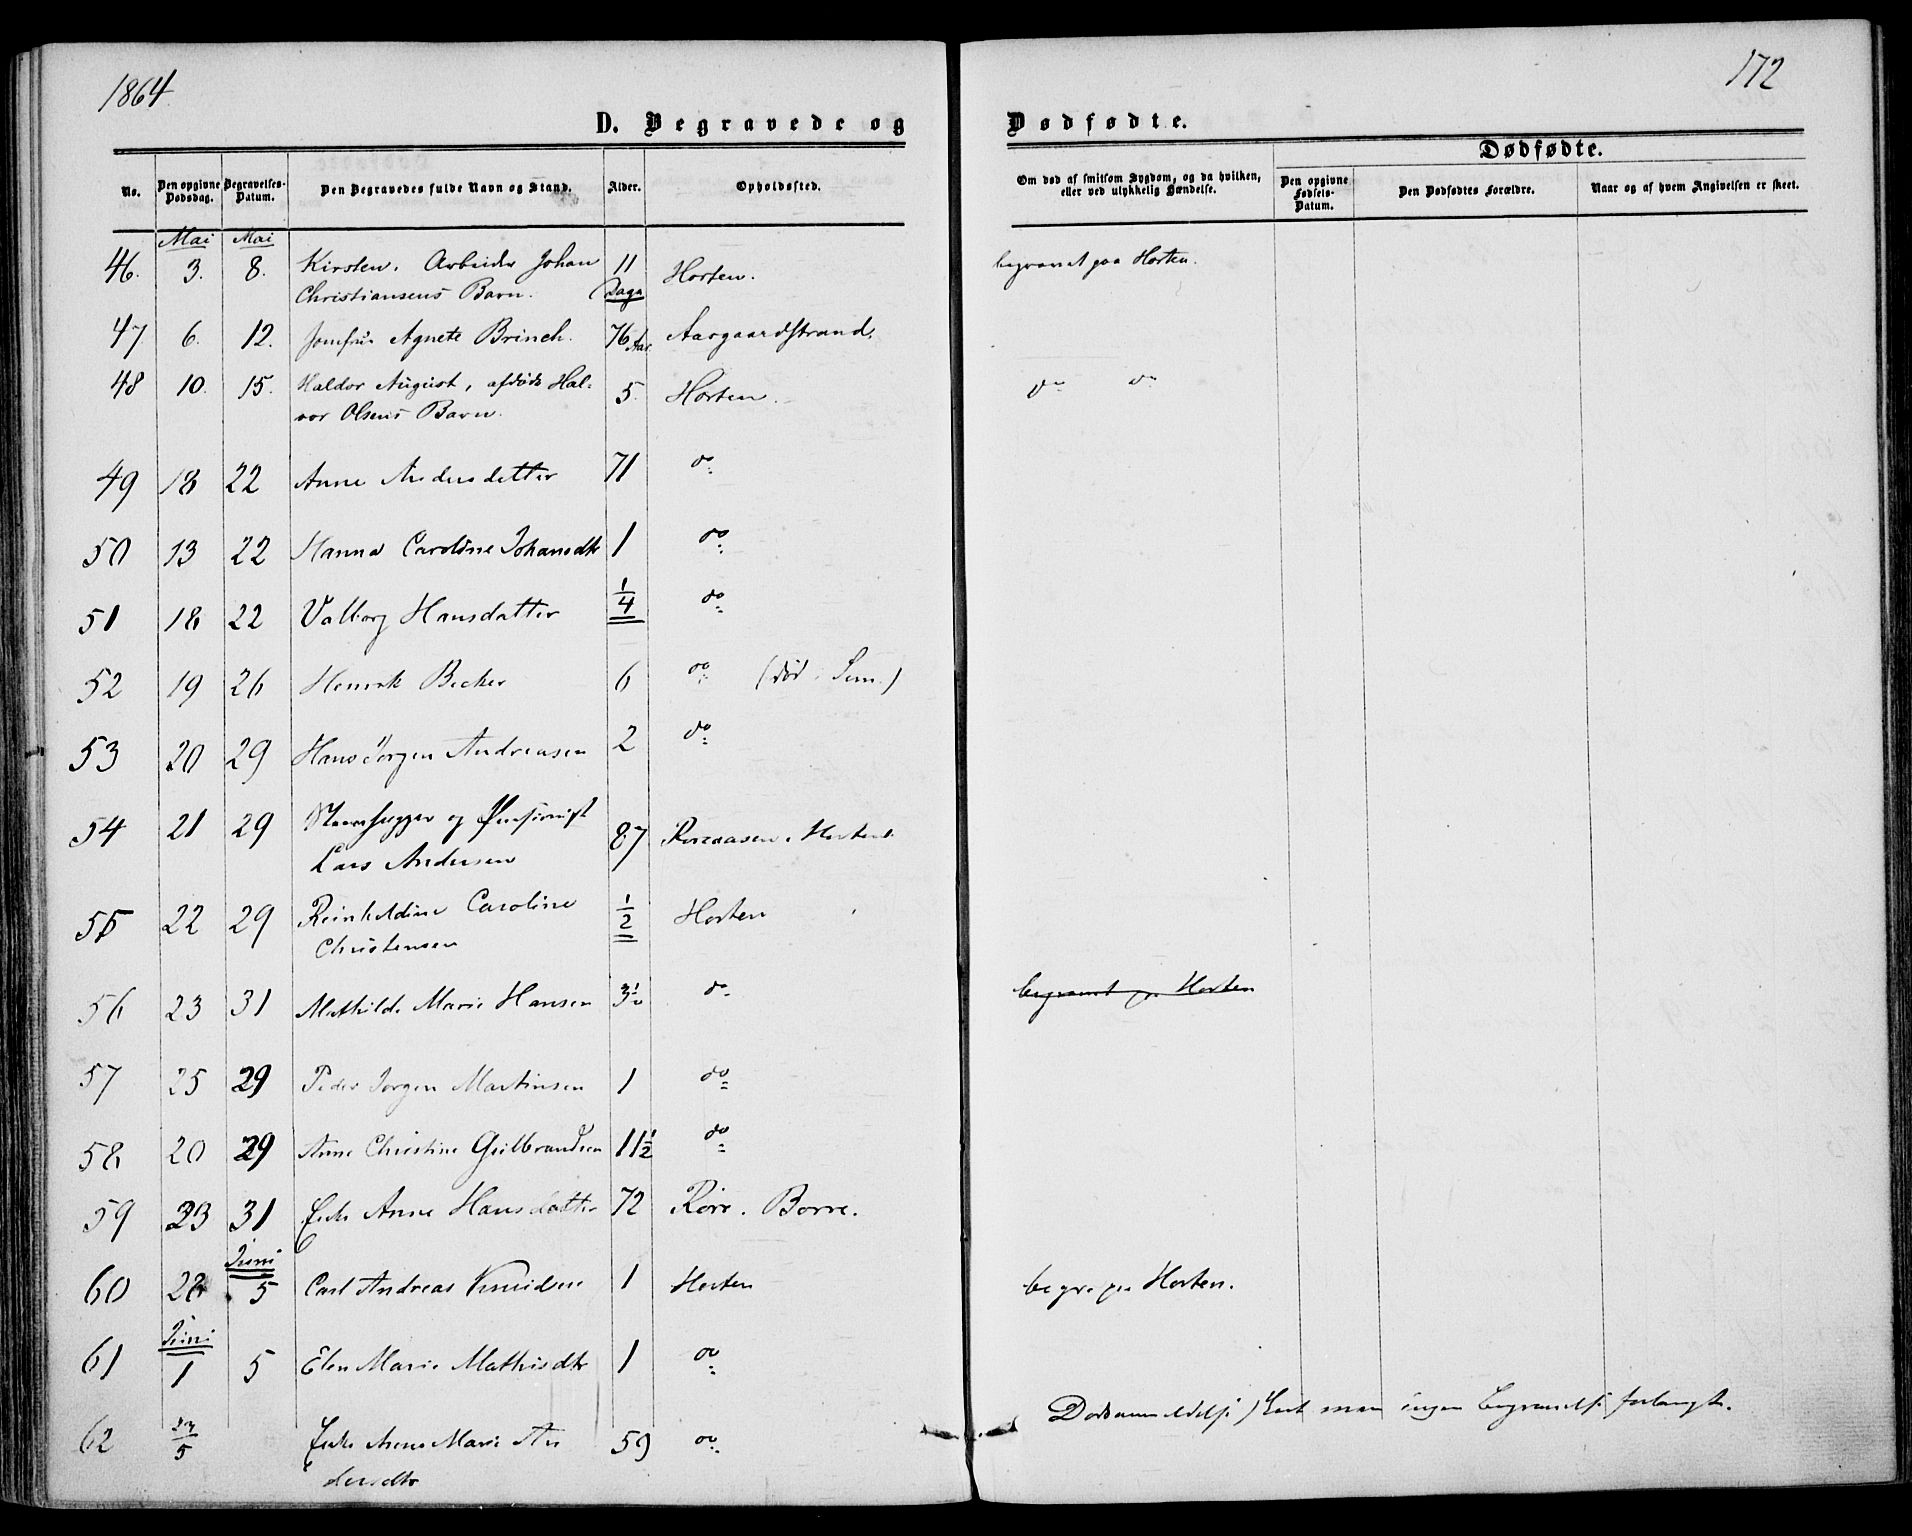 1864
172
D. Begravede og Dødfødte.
Dødfødte.
No.
Den opgivne Dødsdag.
Begravelses-Datum.
Den Begravedes fulde Navn og Stand.
Alder.
Opholdssted.
Om død af smitsom Sygdom, og da hvilken, eller ved ulykkelig Hændelse.
Den opgivne Fødsels-Datum.
Den Dødfødtes Forældre.
Naar og af hvem Angivelsen er skeet.
Mai Mai
46. 3. 8. Kirsten, Arbeider Johan 11 Horten. begravet paa Horten.
Christiansens Barn. Dage
47 6. 12. Jomfru Agnete Brinch. 76 Aar Aasgaardstrand.
48 10. 15. Haldor August, afdøde Hal- 5. Horten. do do
vor Olsens Barn.
49 18 22 Anne Andersdatter 71 do
50 13 22 Hanna Caroline Johansdtr 1 do
51 18 22 Valborg Hansdatter 1/4 do
52 19 26 Henrik Becker 6 do (død i Sem.)
53 20 29 Hans Jørgen Andreasen 2 do
54 21 29 og Pensionist
Lars Andersen 87 Horten
55 22 29 Reinholdine Caroline 1/2 Horten
Christensen
56 23 31 Mathilde Marie Hansen 3 1/2 do begravet pa Horten
57 25 29 Peder Jørgen Martinsen 1 do
58 20 29 Anne Christine Gulbrandsen 11 1/2 do
59 23 31 Enke Anne Hansdatter 72 Røre. Borre.
Juni
60 28 5 Carl Andreas Knudsen 1 Horten begr. paa Horten.
Juni
61 1 5 Elen Marie Mathisdtr 1 do
62 Enke Anne Marie An 59 do Dødsanmeldelse men ingen Begravelse forlangt.
dersdtr